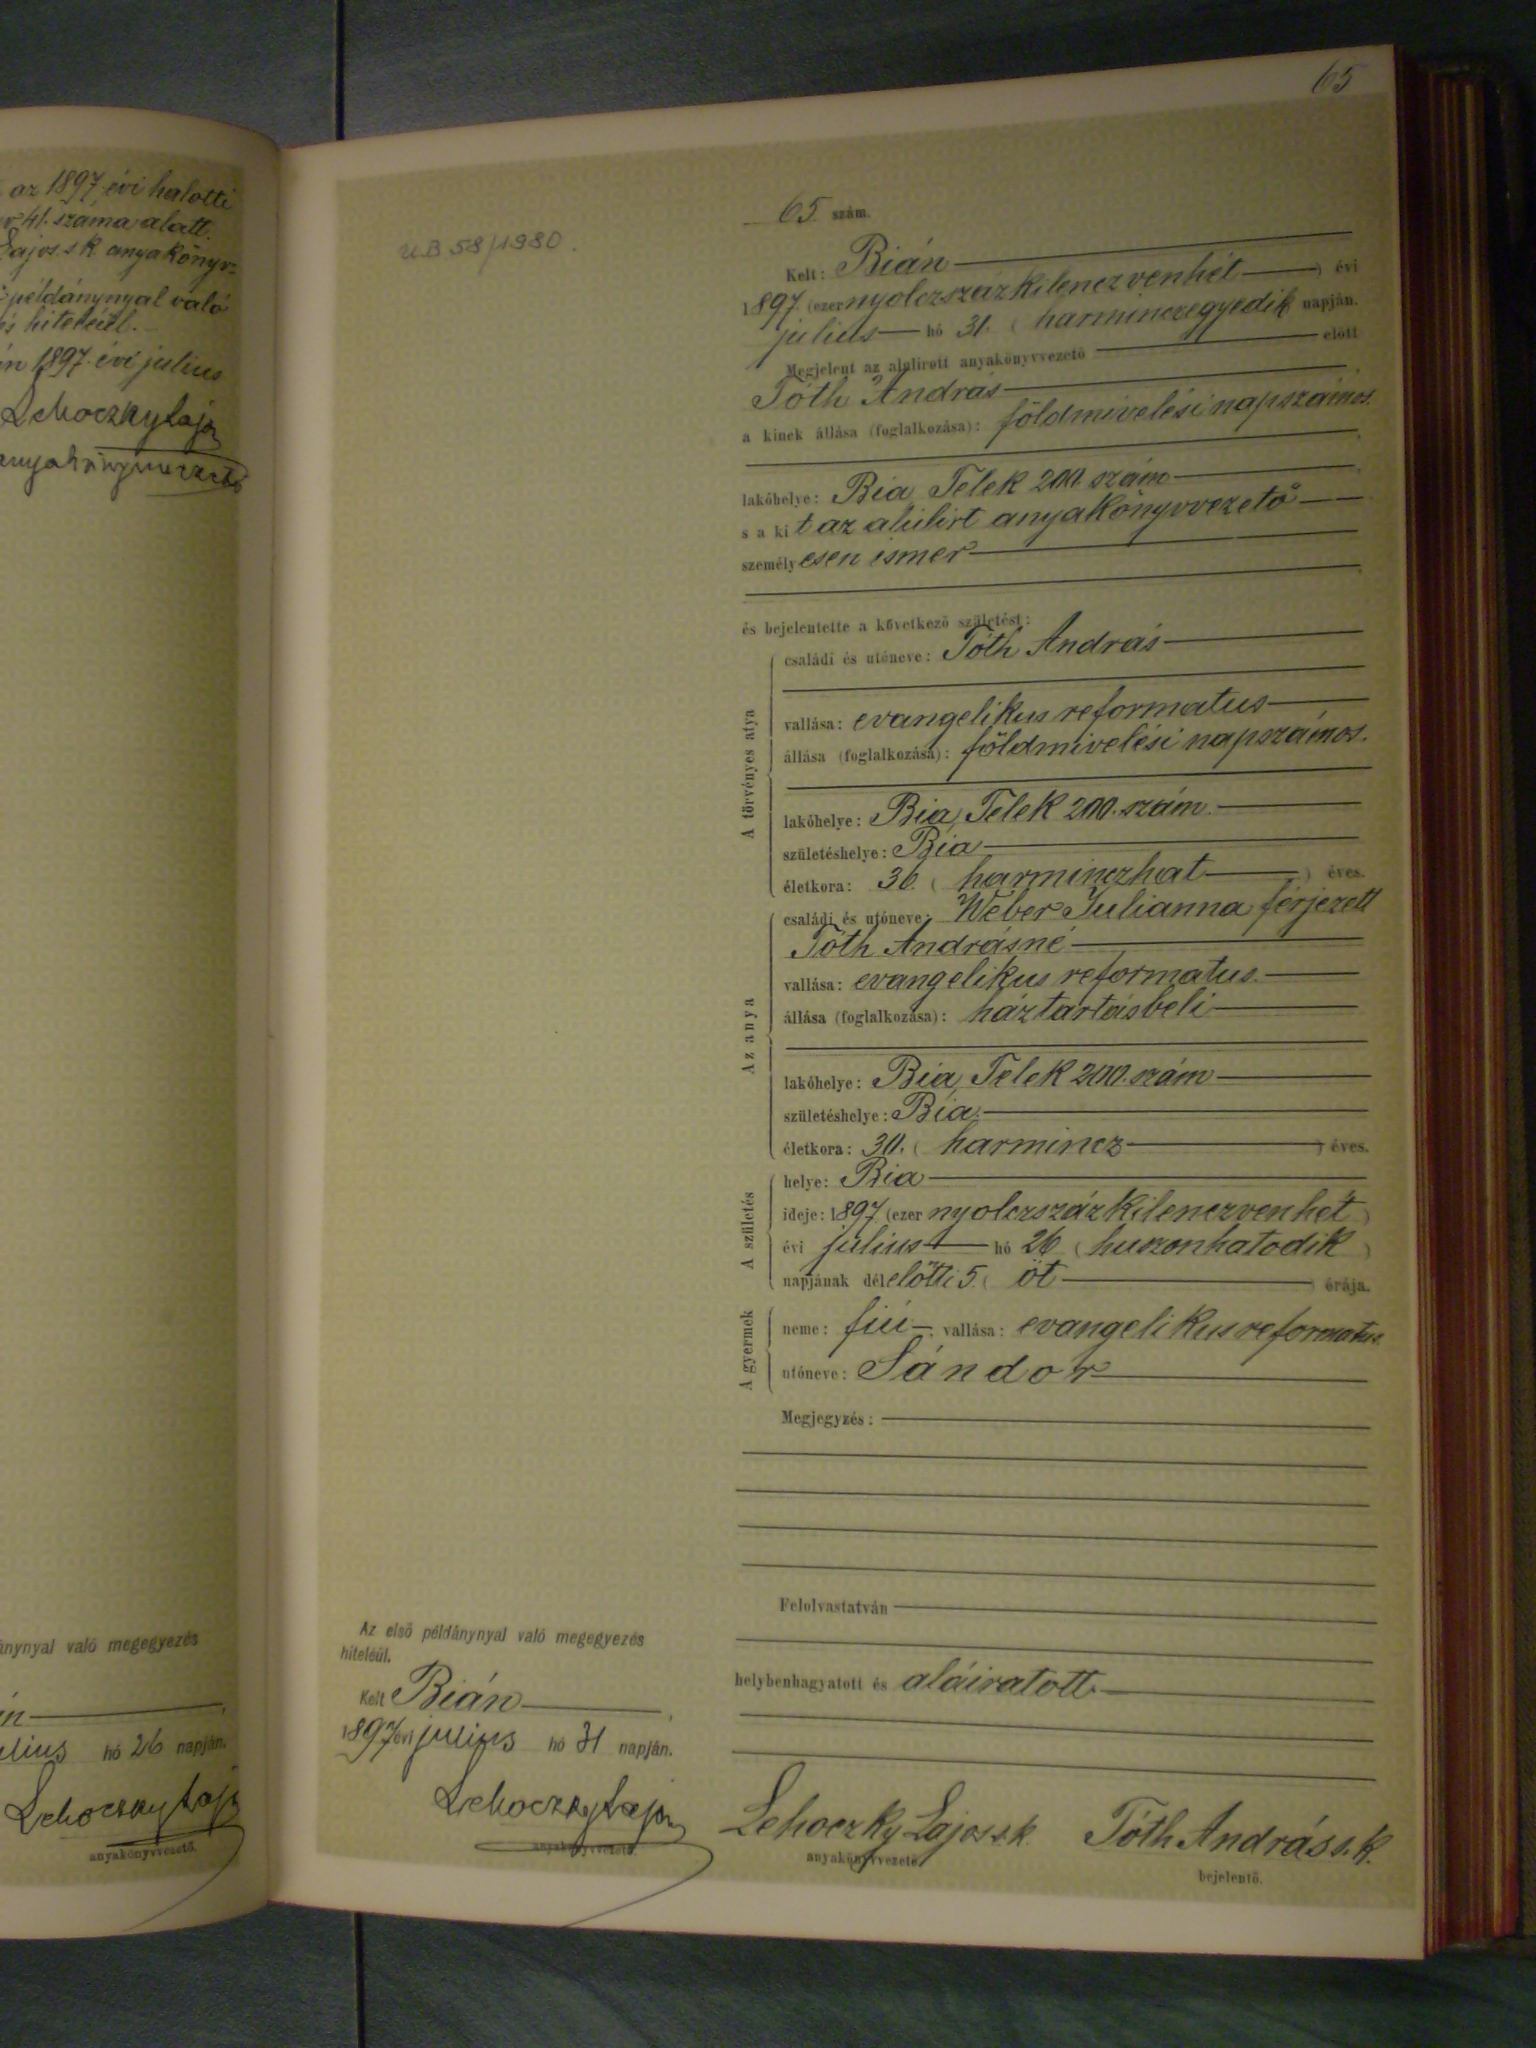 az 1897. évi halotti
41. száma alatt.
Lajos s. k. anyakönyv-
példánynyal való
hiteléül.
1897. évi julius
Lehoczky Lajos
anyakönyvvezető
való megegyezés
julius hó 26 napján.
Lehoczky Lajos
anyakönyvvezető.
65
U.B 58/1980.
65 szám.
Kelt: Bián
1897 (ezer nyolczszázkilenczvenhét) évi
julius hó 31. (harminczegyedik napján.
Megjelent az alulirott anyakönyvvezető előtt
Tóth András
a kinek állása (foglalkozása): földmivelési napszámos.
lakóhelye: Bia, Telek 200. szám
s a kit az alulirt anyakönyvvezető
személyesen ismer
és bejelentette a következő születést:
A törvényes atya
családi és utóneve: Tóth András
vallása: evangelikus reformatus
állása (foglalkozása): földmivelési napszámos.
lakóhelye: Bia, Telek 200. szám.
születéshelye: Bia
életkora: 36. (harminczhat) éves.
Az anya
családi és utóneve: Weber Julianna férjezett
Tóth Andrásné
vallása: evangelikus reformatus.
állása (foglalkozása): háztartásbeli
lakóhelye: Bia, Telek 200. szám
születéshelye: Bia.
életkora: 30. (harmincz) éves.
A születés
helye: Bia
ideje: 1897. (ezer nyolczszázkilenczvenhét)
évi julius hó 26 (huszonhatodik)
napjának délelőtti 5. (öt) órája.
A gyermek
neme: fiú; vallása: evangelikus reformatus.
utóneve: Sándor
Megjegyzés:
Felolvastatván
helybenhagyatott és aláiratott.
Az első példánynyal való megegyezés
hiteléül.
Kelt Bián,
1897 évi julius hó 31 napján.
Lehoczky Lajos
anyakönyvvezető.
Lehoczky Lajos s. k.
anyakönyvvezető.
Tóth András s. k.
bejelentő.